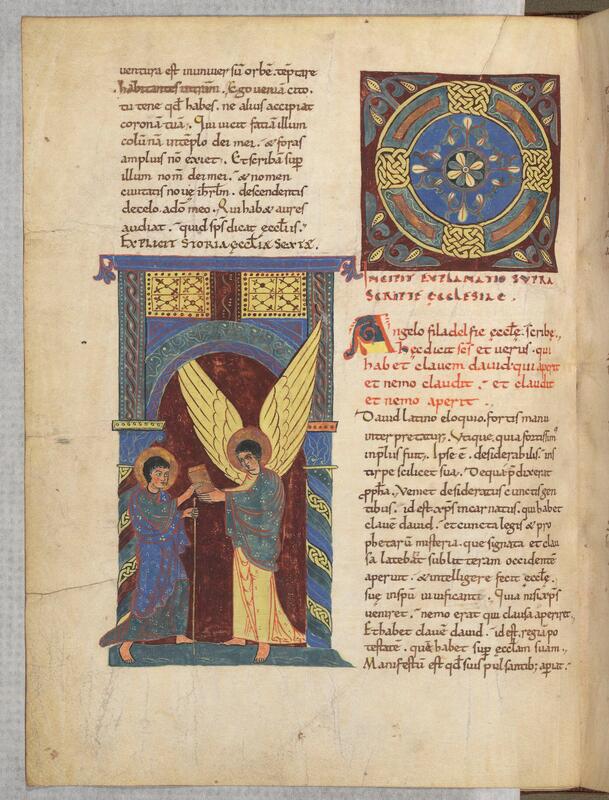 ventura est inuniuersū orbē. tēptare
habitantes intrām. Ego veniā cito.
tu tene qđ habes. ne alius accipiat
coronā tuā. Qui vicit faciā illum
colūnā intēplo dei mei. & foras
amplius nō exiet. Et scribā sup
illum nom̄ dei mei. & nomen
civitatis noue ihrlm̄. descendentis
decelo. adō meo. Qui hab& aures
audiat. quid sp̄s dicat ęccl̄iis.
EXPLICIT STORIA ĘCCLĪA SEXTĘ.
INCIPIT EXPLANATIO SVPRA
SCRIPTE ĘCCLESIAE.
Angelo filadelfie ęccl̄ę. scribe,
hęc dicit sc̄s et verus. qui
habet clavem david. qui aperit
et nemo claudit. et claudit
et nemo aperit.
David latino eloquio. fortis manu
interpretatur. Vtique. quia fortissimᵒ
inplius fuit. Ipse ē. desiderabilis. in s
tirpe scilicet sua. De qua p̄dixerat
ꝓpha. Veniet desideratus cunctis gen
tibus. id est xp̄s incarnatus. qui habet
clavē david. et cuncta legis & pro
phetarū misteria. que signata et clau
sa latebāt sub littera occidente
aperuit. & intelligere fecit eccl̄ę
suę in spū uiuificanti. Quia nisi xp̄s
veniret. nemo erat qui clausa aperiret.
Et habet clavē david. id est, regia po
testate. quā habet sup ęccl̄am suam.
Manifestū est qđ suis pulsantibꝫ apiat.